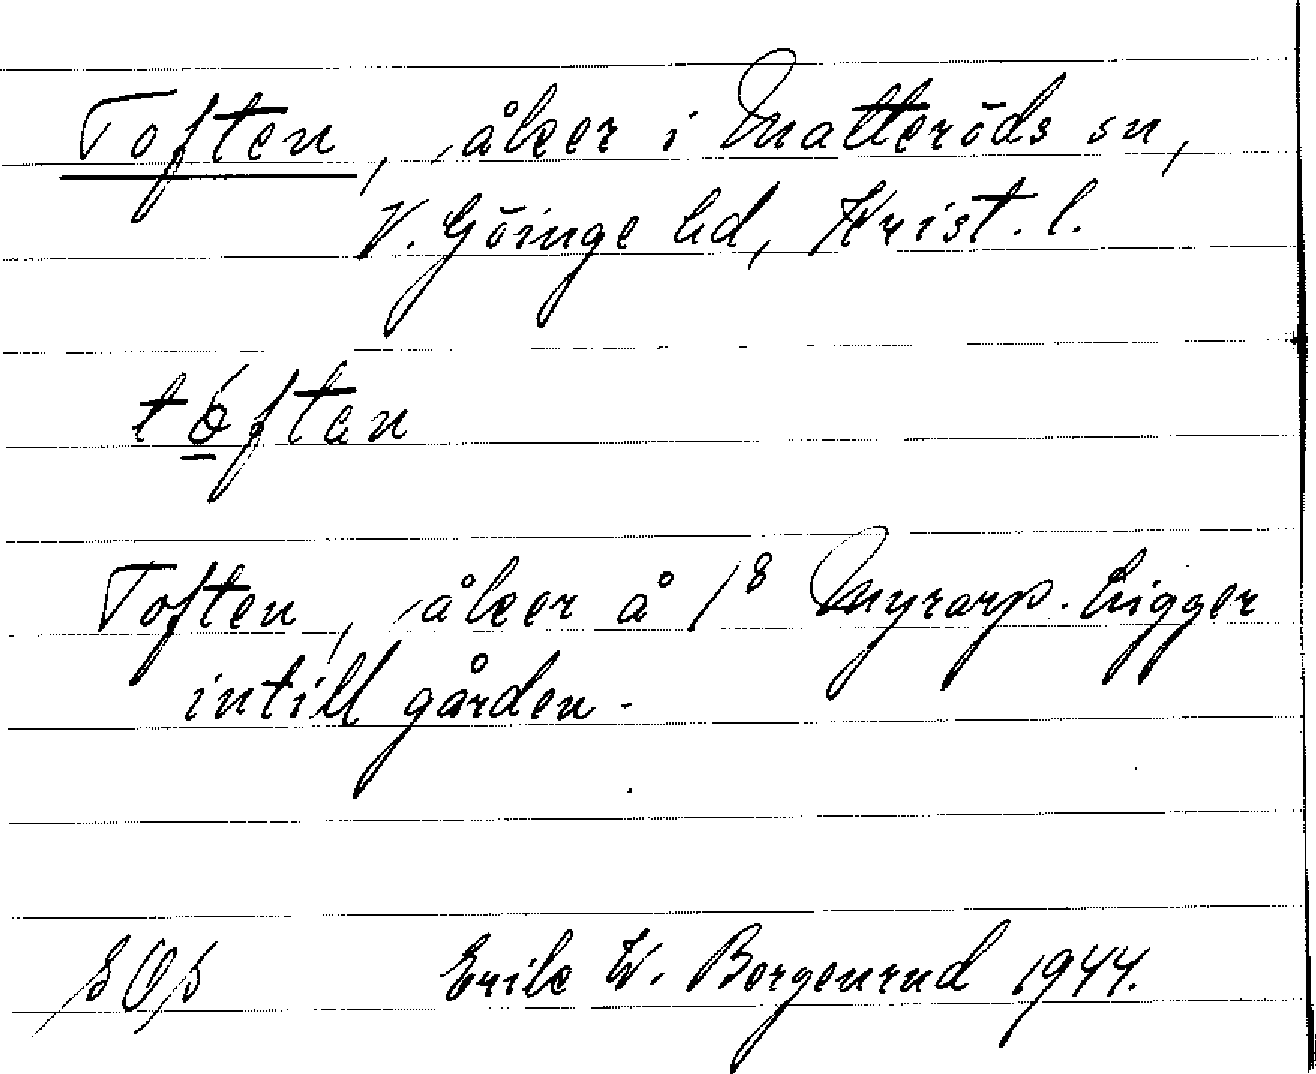 Toften, åker i Matteröds sn,
V. Göinge hd, Krist. l.
tóften
Toften, åker å 1⁸ Myrarp. Ligger
intill gården.
Erik W. Borgenrud 1944.